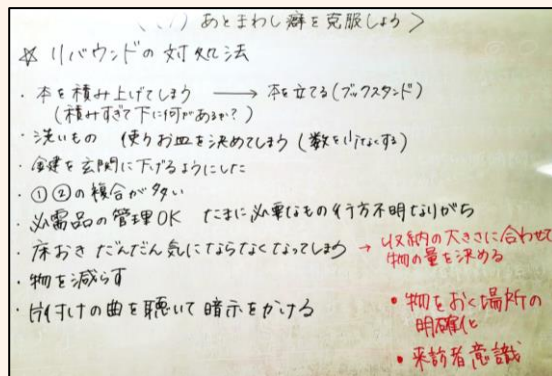 あとまわし癖を克服しよう>
☆ リバウンドの対処法
・本を積み上げてしまう → 本を立てる(ブックスタンド)
(積みすぎて下に何があるか?)
・洗いもの 使うお皿を決めてしまう(数を少なくする)
・鍵を玄関に下げるようにした
・①②の複合が多い
・必需品の管理OK たまに必要なもの行方不明なりがち
・床おき だんだん気にならなくなってしまう → 収納の大きさに合わせて
物の量を決める
・物を減らす
・片付けの曲を聴いて暗示をかける
・物をおく場所の
明確化
・来訪者意識